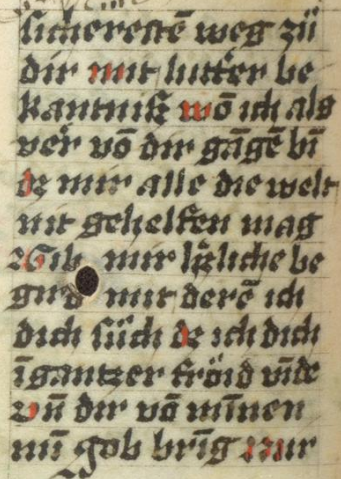 sicherestē weg zü
dir mit lutter be
kantniß wō ich als
ver vō dir gāgē bī
dz mir alle die welt
nit gehelfen mag
Gib mir lipliche be
gird mit derē ich
dich süch dz ich dich
ī gantzer fröid vīde
vn̄ dir vō minnen
min̄ gob bring mir